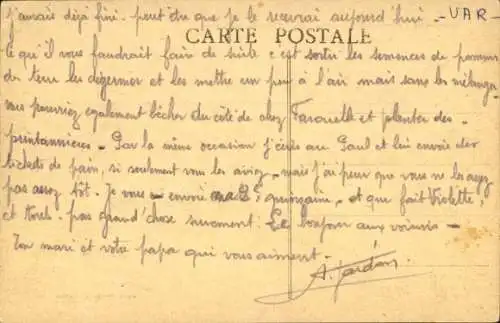 jamais déjà fini - peut être que je le recevrai aujourd'hui. - VAR -
CARTE POSTALE
ce qu'il vous faudrait faire de suite c'est sortir les semences de pommes
de terre les dégermer et les mettre un peu à l'air mais sans les mélanger
vous pourriez également bêcher du côté de chez et planter des
printannières - Par la même occasion j'écris au Paul et lui envoie des
tickets de pain, si seulement vous les aviez, mais j'ai peur que vous ne les ayez
pas assez tôt. Je vous envoie quinzaine, et que fait Violette,
et pas grand chose sûrement. Le bonjour aux voisins -
Ton mari et votre papa qui vous aiment.